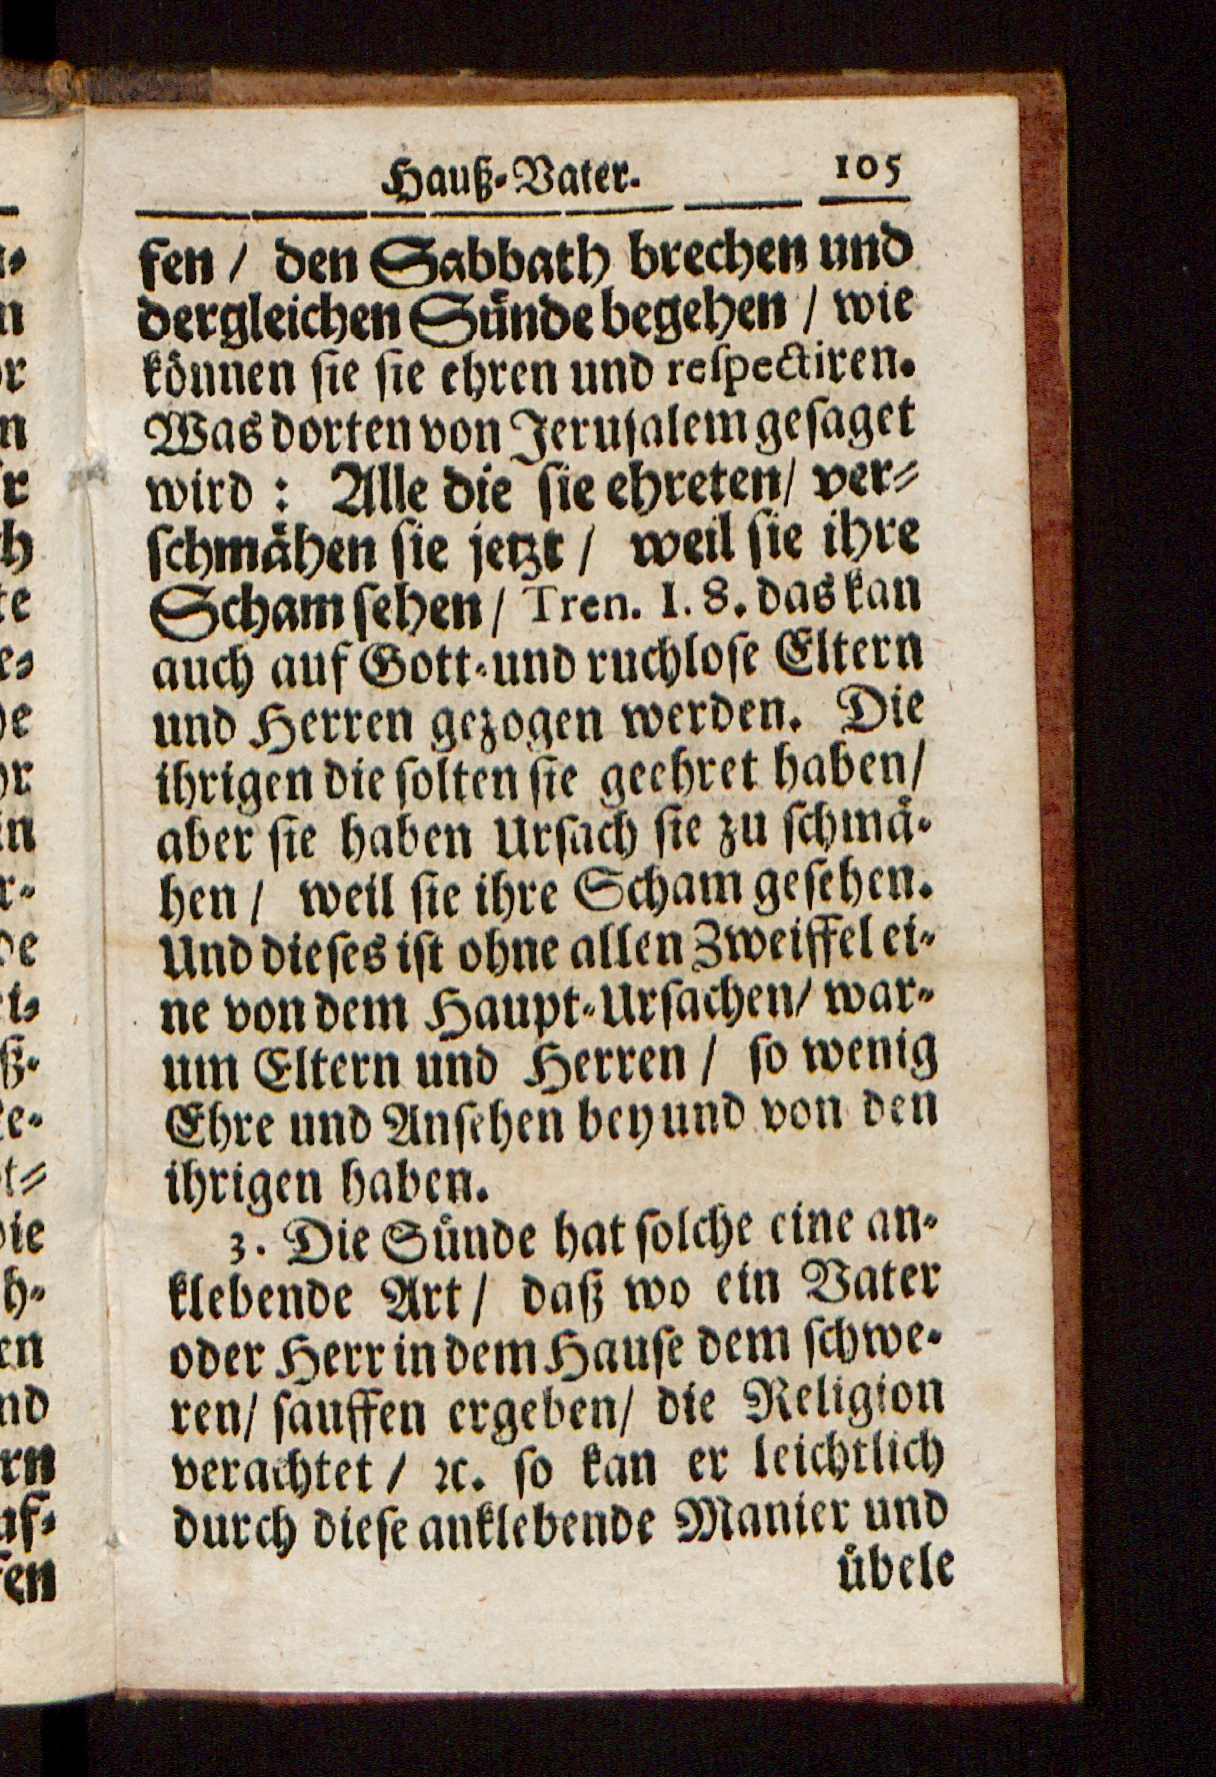 Hauß-Vater. 105
fen / den Sabbath brechen und
dergleichen Sünde begehen / wie
können sie sie ehren und respectiren.
Was dorten von Jerusalem gesaget
wird : Alle die sie ehreten / ver-
schmähen sie jetzt / weil sie ihre
Scham sehen / Tren. I. 8. das kan
auch auf Gott-und ruchlose Eltern
und Herren gezogen werden. Die
ihrigen die solten sie geehret haben /
aber sie haben Ursach sie zu schmä-
hen / weil sie ihre Scham gesehen.
Und dieses ist ohne allen Zweiffel ei-
ne von dem Haupt-Ursachen / war-
um Eltern und Herren / so wenig
Ehre und Ansehen bey und von den
ihrigen haben.
3. Die Sünde hat solche eine an-
klebende Art / daß wo ein Vater
oder Herr in dem Hause dem schwe-
ren / sauffen ergeben / die Religion
verachtet / ꝛc. so kan er leichtlich
durch diese anklebende Manier und
übele